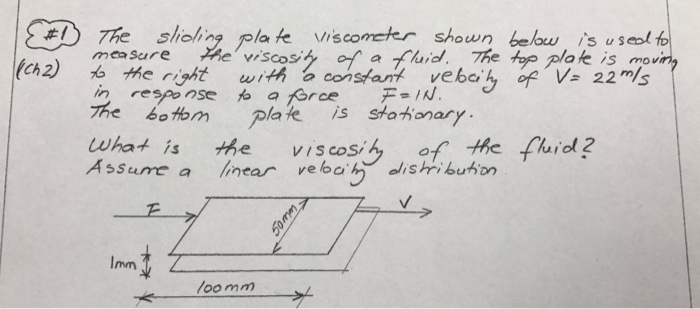 #1 The sliding plate viscometer shown below is used to
(Ch2) measure the viscosity of a fluid. The top plate is moving
to the right with a constant velocity of V= 22 m/s
in response to a force F=1N.
The bottom plate is stationary.
What is the viscosity of the fluid?
Assume a linear velocity distribution
F
50mm
V
1mm
100mm